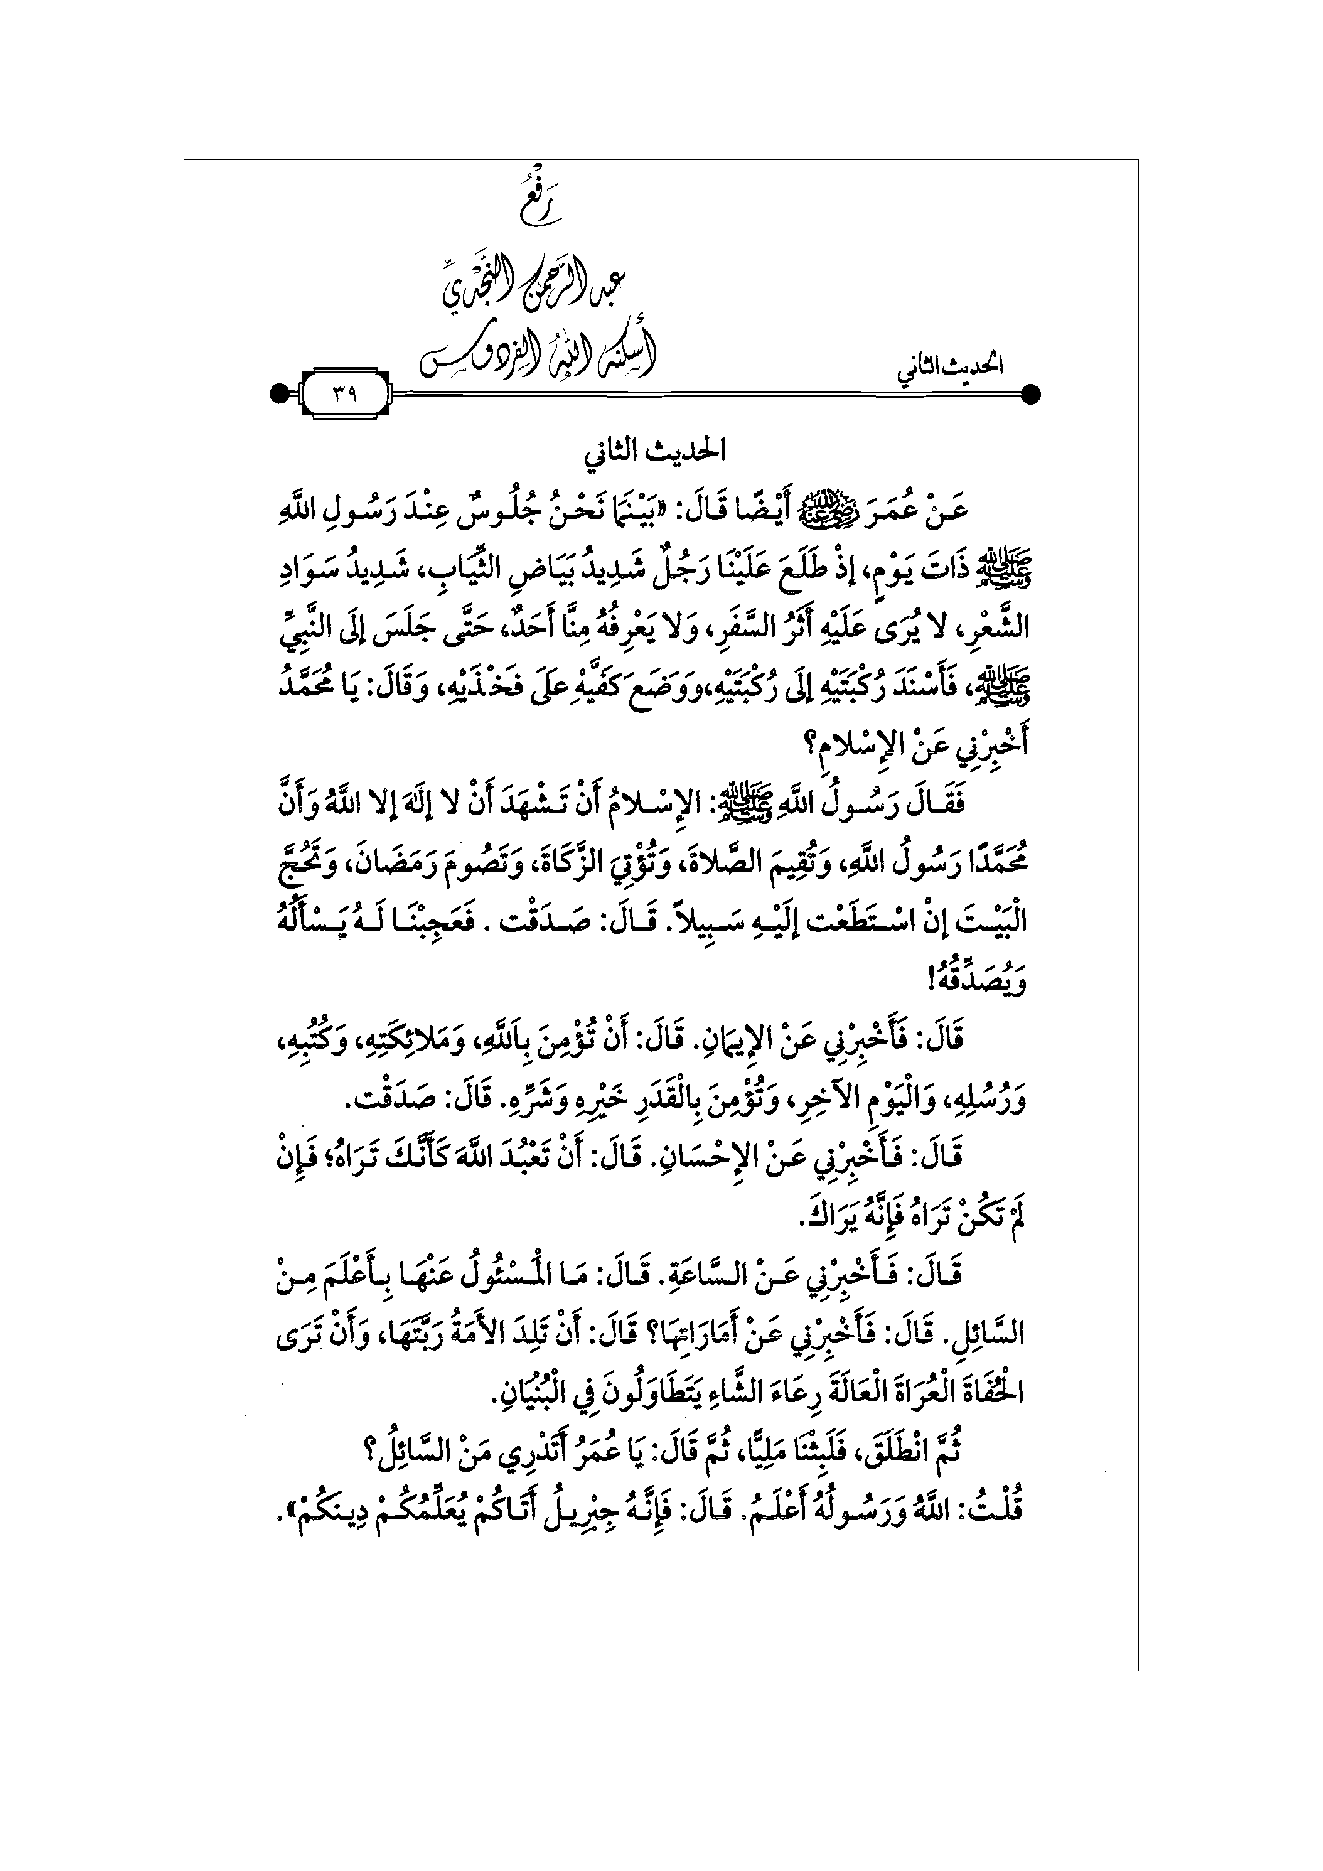 رَفْعُ
عبد الرحمن النجدي
أسكنه الله الفردوس
الحديث الثاني
٣٩
الحديث الثاني
عَنْ عُمَرَ رضي الله عنه أَيْضًا قَالَ: «بَيْنَمَا نَحْنُ جُلُوسٌ عِنْدَ رَسُولِ اللَّهِ
ﷺ ذَاتَ يَوْمٍ، إذْ طَلَعَ عَلَيْنَا رَجُلٌ شَدِيدُ بَيَاضِ الثِّيَابِ، شَدِيدُ سَوَادِ
الشَّعْرِ، لا يُرَى عَلَيْهِ أَثَرُ السَّفَرِ، وَلا يَعْرِفُهُ مِنَّا أَحَدٌ، حَتَّى جَلَسَ إلَى النَّبِيِّ
ﷺ، فَأَسْنَدَ رُكْبَتَيْهِ إلَى رُكْبَتَيْهِ،وَوَضَعَ كَفَّيْهِ عَلَى فَخْذَيْهِ، وَقَالَ: يَا مُحَمَّدُ
أَخْبِرْنِي عَنْ الإِسْلامِ؟
فَقَالَ رَسُولُ اللَّهِ ﷺ: الإِسْلامُ أَنْ تَشْهَدَ أَنْ لا إلَهَ إلا اللَّهُ وَأَنَّ
مُحَمَّدًا رَسُولُ اللَّهِ، وَتُقِيمَ الصَّلاةَ، وَتُؤْتِيَ الزَّكَاةَ، وَتَصُومَ رَمَضَانَ، وَتَحُجَّ
الْبَيْتَ إنْ اسْتَطَعْت إلَيْهِ سَبِيلاً. قَالَ: صَدَقْت . فَعَجِبْنَا لَهُ يَسْأَلُهُ
وَيُصَدِّقُهُ!
قَالَ: فَأَخْبِرْنِي عَنْ الإِيمَانِ. قَالَ: أَنْ تُؤْمِنَ بِاَللَّهِ، وَمَلائِكَتِهِ، وَكُتُبِهِ،
وَرُسُلِهِ، وَالْيَوْمِ الآخِرِ، وَتُؤْمِنَ بِالْقَدَرِ خَيْرِهِ وَشَرِّهِ. قَالَ: صَدَقْت.
قَالَ: فَأَخْبِرْنِي عَنْ الإِحْسَانِ. قَالَ: أَنْ تَعْبُدَ اللَّهَ كَأَنَّكَ تَرَاهُ؛ فَإِنْ
لَمْ تَكُنْ تَرَاهُ فَإِنَّهُ يَرَاكَ.
قَالَ: فَأَخْبِرْنِي عَنْ السَّاعَةِ. قَالَ: مَا الْمَسْئُولُ عَنْهَا بِأَعْلَمَ مِنْ
السَّائِلِ. قَالَ: فَأَخْبِرْنِي عَنْ أَمَارَاتِهَا؟ قَالَ: أَنْ تَلِدَ الأَمَةُ رَبَّتَهَا، وَأَنْ تَرَى
الْحُفَاةَ الْعُرَاةَ الْعَالَةَ رِعَاءَ الشَّاءِ يَتَطَاوَلُونَ فِي الْبُنْيَانِ.
ثُمَّ انْطَلَقَ، فَلَبِثْنَا مَلِيًّا، ثُمَّ قَالَ: يَا عُمَرُ أَتَدْرِي مَنْ السَّائِلُ؟
قُلْتُ: اللَّهُ وَرَسُولُهُ أَعْلَمُ. قَالَ: فَإِنَّهُ جِبْرِيلُ أَتَاكُمْ يُعَلِّمُكُمْ دِينَكُمْ».